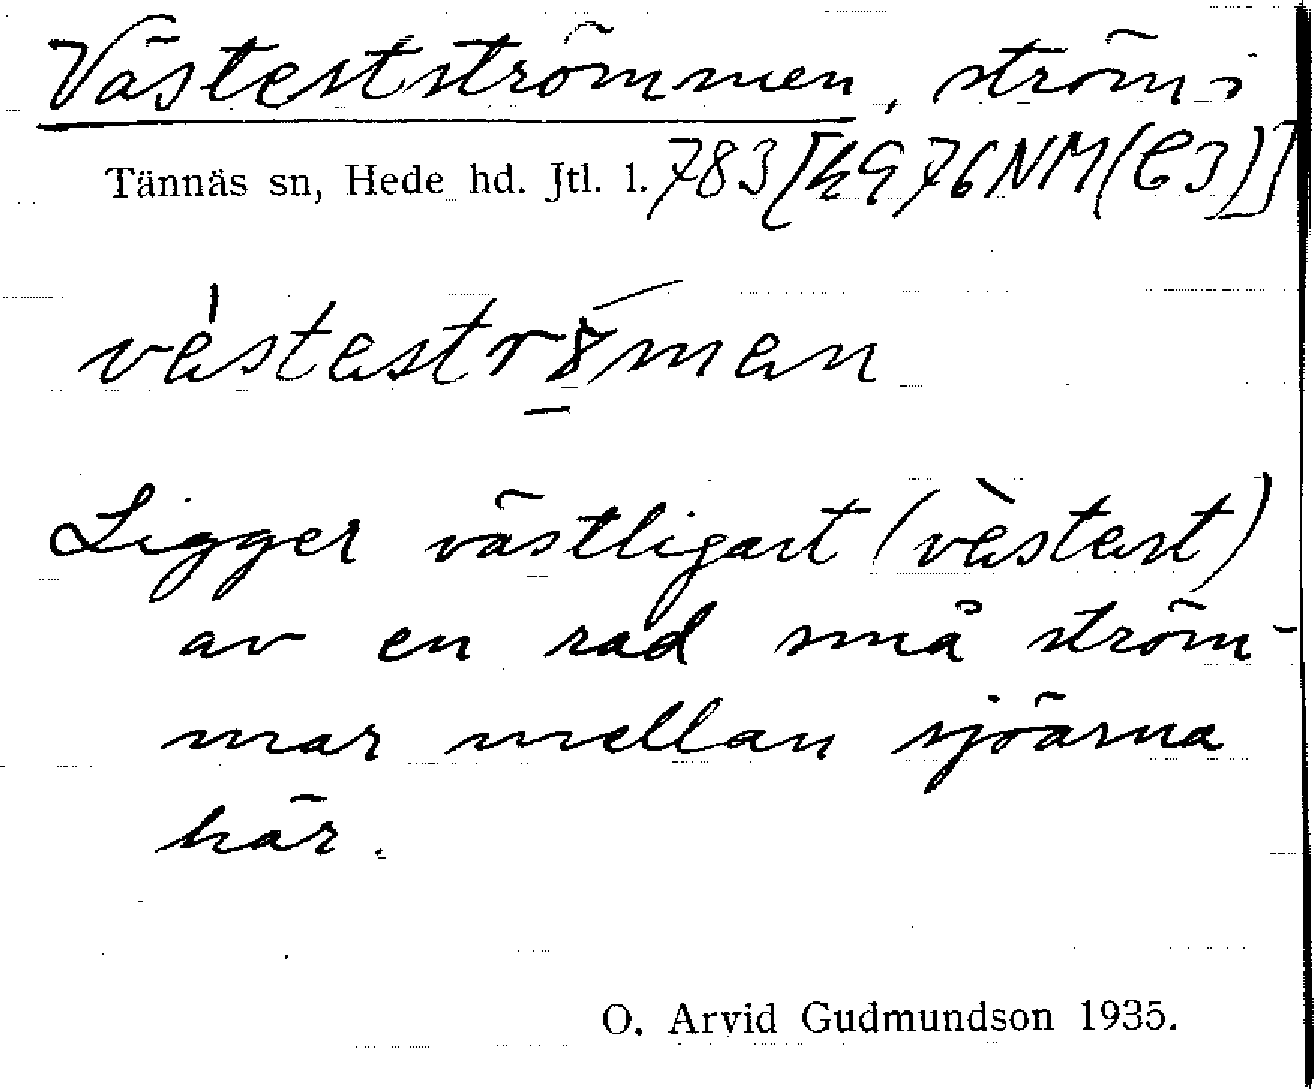 Västertströmmen, ström i
Tännäs sn, Hede hd. Jtl. l. 783 [h976NM(C3)]
Ligger västligast (vèstest)
av en rad små ström-
mar mellan sjöarna
här.
O. Arvid Gudmundson 1935.